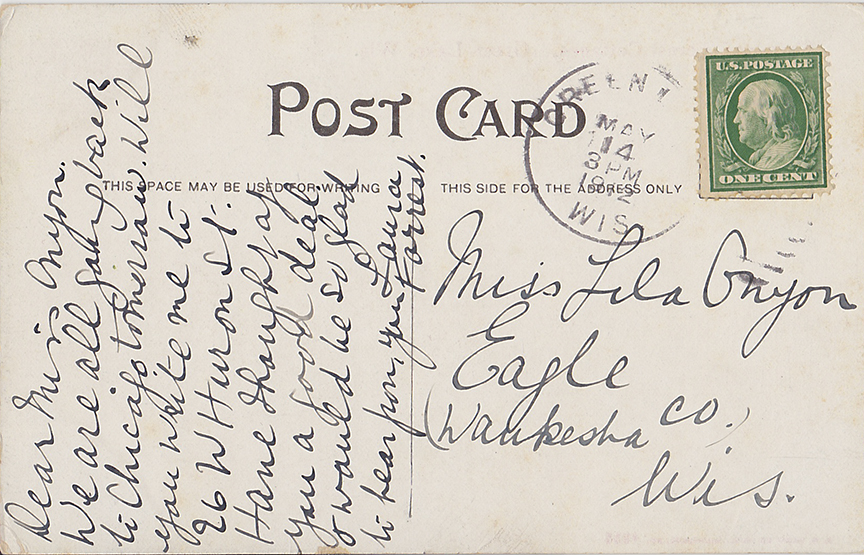 POST CARD
THIS SPACE MAY BE USED FOR WRITING
THIS SIDE FOR THE ADDRESS ONLY
GREEN
MAY
14
8 PM
1912
WIS
U.S. POSTAGE
ONE CENT
Dear Miss Onyon.
We are all going back
to Chicago tomorrow. Will
you write me to
26 W Huron St.
Have thought of
you a good deal
& would be so glad
to hear from you
Laura
Forrest.
Miss Lila Onyon
Eagle
(Waukesha Co.)
Wis.